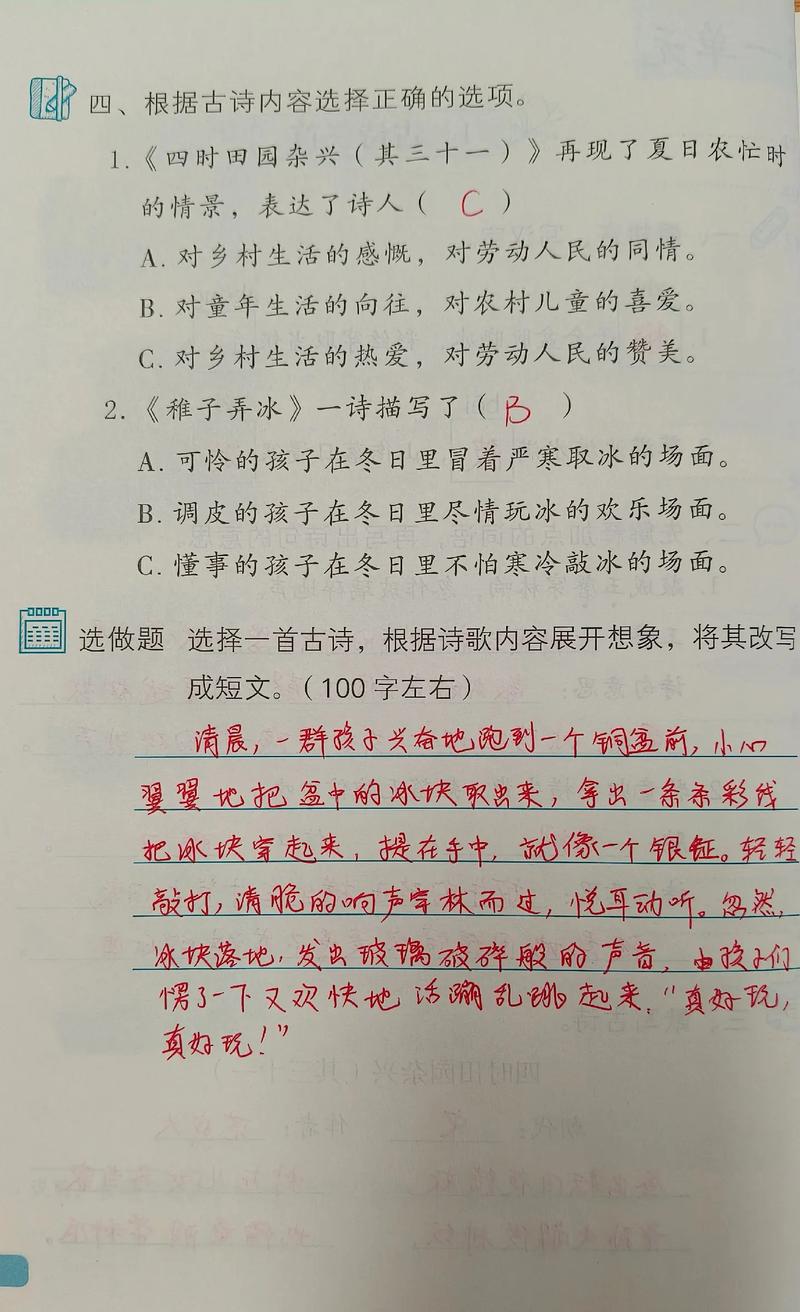 四、根据古诗内容选择正确的选项。
1.《四时田园杂兴（其三十一）》再现了夏日农忙时
的情景，表达了诗人（ C ）
A. 对乡村生活的感慨，对劳动人民的同情。
B. 对童年生活的向往，对农村儿童的喜爱。
C. 对乡村生活的热爱，对劳动人民的赞美。
2.《稚子弄冰》一诗描写了（ B ）
A. 可怜的孩子在冬日里冒着严寒取冰的场面。
B. 调皮的孩子在冬日里尽情玩冰的欢乐场面。
C. 懂事的孩子在冬日里不怕寒冷敲冰的场面。
选做题 选择一首古诗，根据诗歌内容展开想象，将其改写
成短文。（100字左右）
清晨，一群孩子兴奋地跑到一个铜盆前，小心
翼翼地把盆中的冰块取出来，拿出一条条彩线
把冰块穿起来，提在手中，就像一个银钲。轻轻
敲打，清脆的响声穿林而过，悦耳动听。忽然，
冰块落地，发出玻璃破碎般的声音，孩子们
愣了一下又欢快地活蹦乱跳起来，“真好玩，
真好玩！”